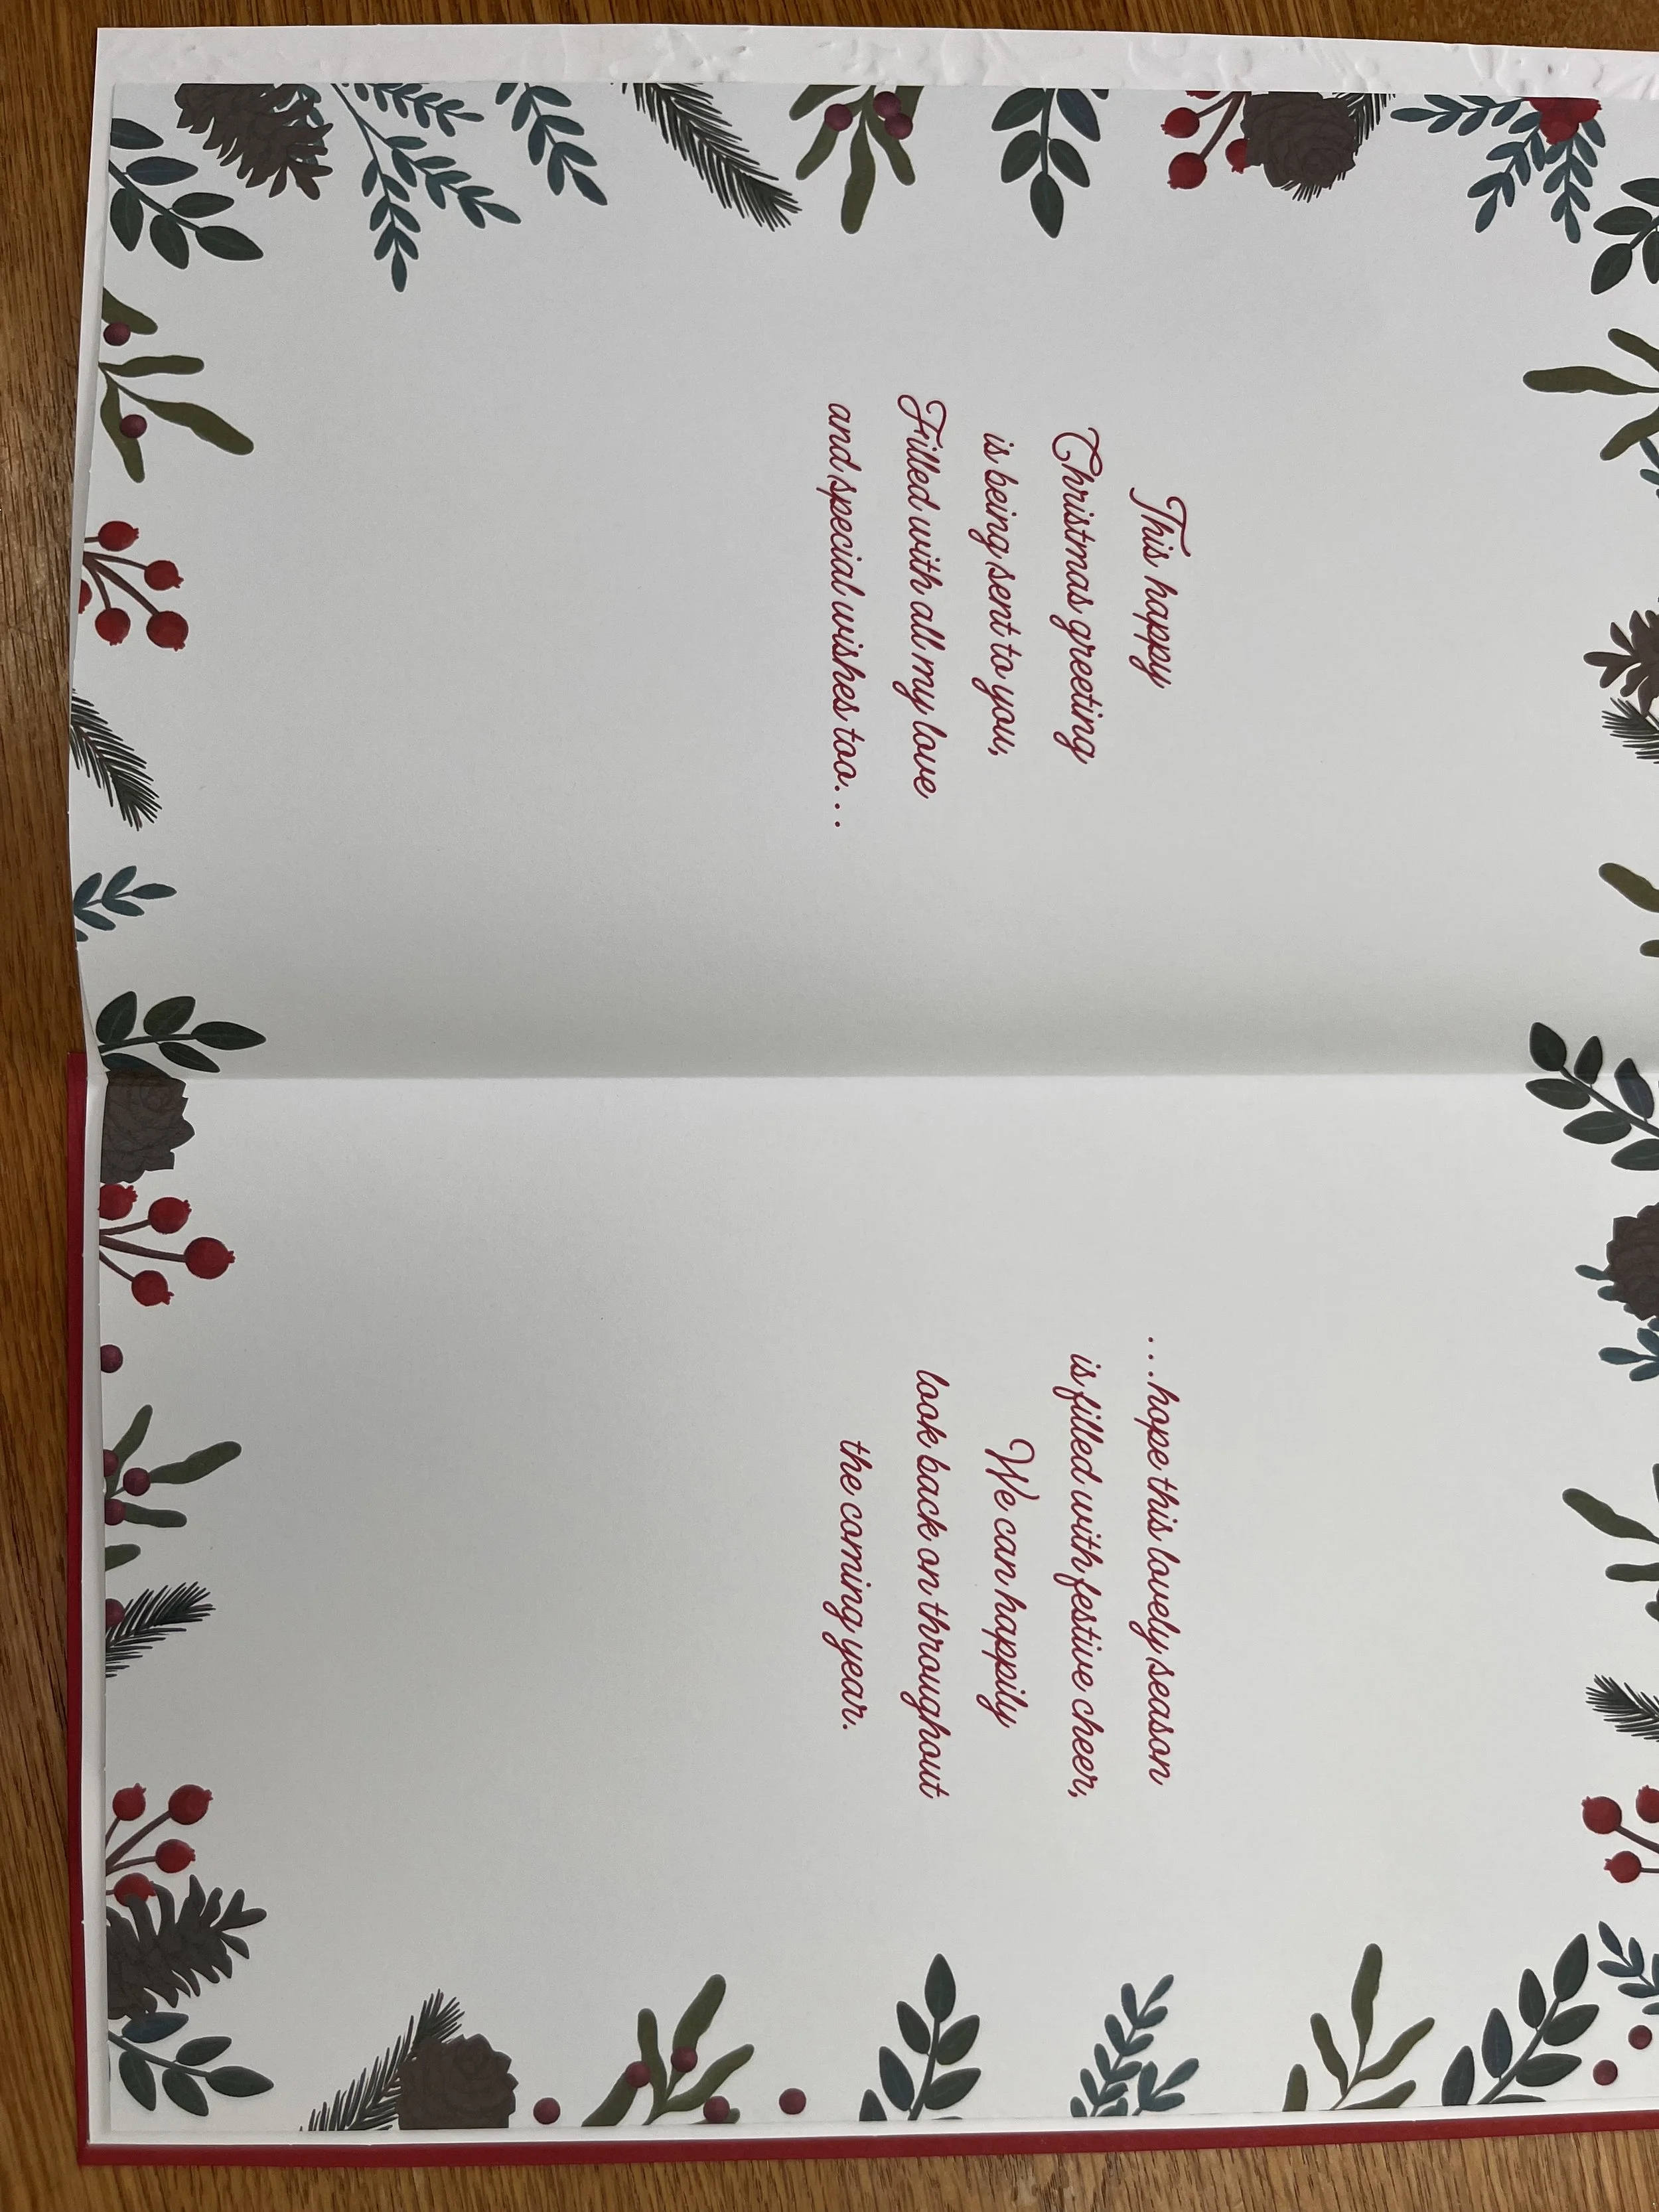 This happy
Christmas greeting
is being sent to you,
Filled with all my love
and special wishes too...
...hope this lovely season
is filled with festive cheer,
We can happily
look back on throughout
the coming year.